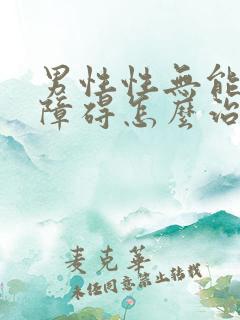 男性性無能
障碍怎麼治
麦克華
未经同意禁止转载